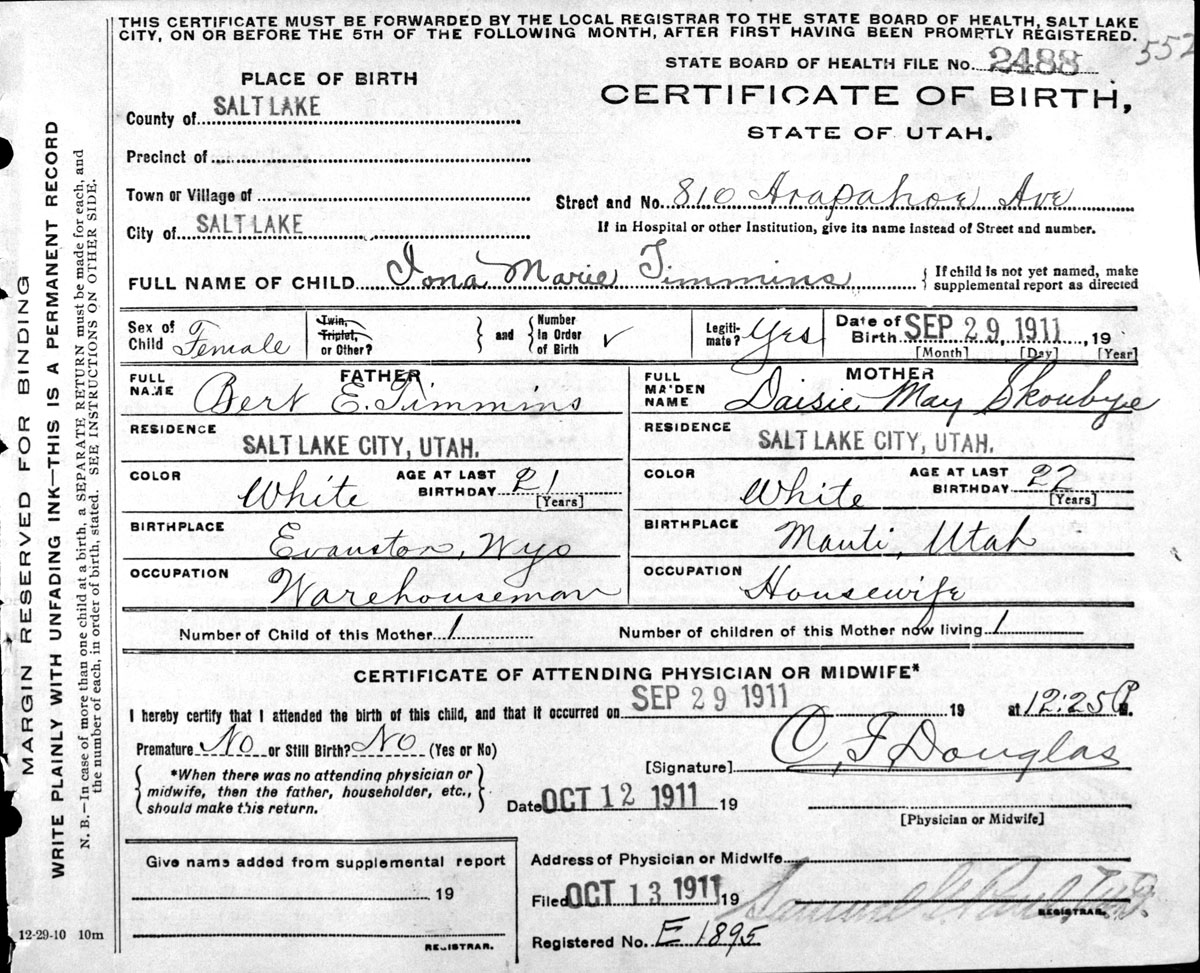 THIS CERTIFICATE MUST BE FORWARDED BY THE LOCAL REGISTRAR TO THE STATE BOARD OF HEALTH, SALT LAKE
CITY, ON OR BEFORE THE 5TH OF THE FOLLOWING MONTH, AFTER FIRST HAVING BEEN PROMPTLY REGISTERED.
552
STATE BOARD OF HEALTH FILE No. 2488
CERTIFICATE OF BIRTH,
STATE OF UTAH.
PLACE OF BIRTH
County of SALT LAKE
Precinct of
Town or Village of
City of SALT LAKE
Street and No. 810 Arapahoe Ave
If in Hospital or other Institution, give its name instead of Street and number.
FULL NAME OF CHILD Iona Marie Timmins
If child is not yet named, make
supplemental report as directed
Sex of Child Female
Twin, Triplet, or Other?
and Number In Order of Birth ✓
Legiti-mate? Yes
Date of Birth SEP 29, 1911, 19
[Month] [Day] [Year]
FATHER
FULL NAME Bert E. Timmins
RESIDENCE
SALT LAKE CITY, UTAH.
COLOR White AGE AT LAST BIRTHDAY 21 [Years]
BIRTHPLACE Evanston, Wyo
OCCUPATION Warehouseman
MOTHER
FULL MAIDEN NAME Daisie May Skoubye
RESIDENCE
SALT LAKE CITY, UTAH.
COLOR White AGE AT LAST BIRTHDAY 22 [Years]
BIRTHPLACE Manti, Utah
OCCUPATION Housewife
Number of Child of this Mother 1 Number of children of this Mother now living 1
CERTIFICATE OF ATTENDING PHYSICIAN OR MIDWIFE*
I hereby certify that I attended the birth of this child, and that it occurred on SEP 29 1911 19 at 12:25 P.
Premature No or Still Birth? No (Yes or No)
*When there was no attending physician or
midwife, then the father, householder, etc.,
should make this return.
[Signature] C. F. Douglas
Date OCT 12 1911 19
[Physician or Midwife]
Give name added from supplemental report
19
REGISTRAR.
Address of Physician or Midwife
Filed OCT 13 1911 19
REGISTRAR.
Registered No. E 1895
12-29-10 10m
MARGIN RESERVED FOR BINDING
WRITE PLAINLY WITH UNFADING INK—THIS IS A PERMANENT RECORD
N. B.—In case of more than one child at a birth, a SEPARATE RETURN must be made for each, and
the number of each, in order of birth, stated. SEE INSTRUCTIONS ON OTHER SIDE.